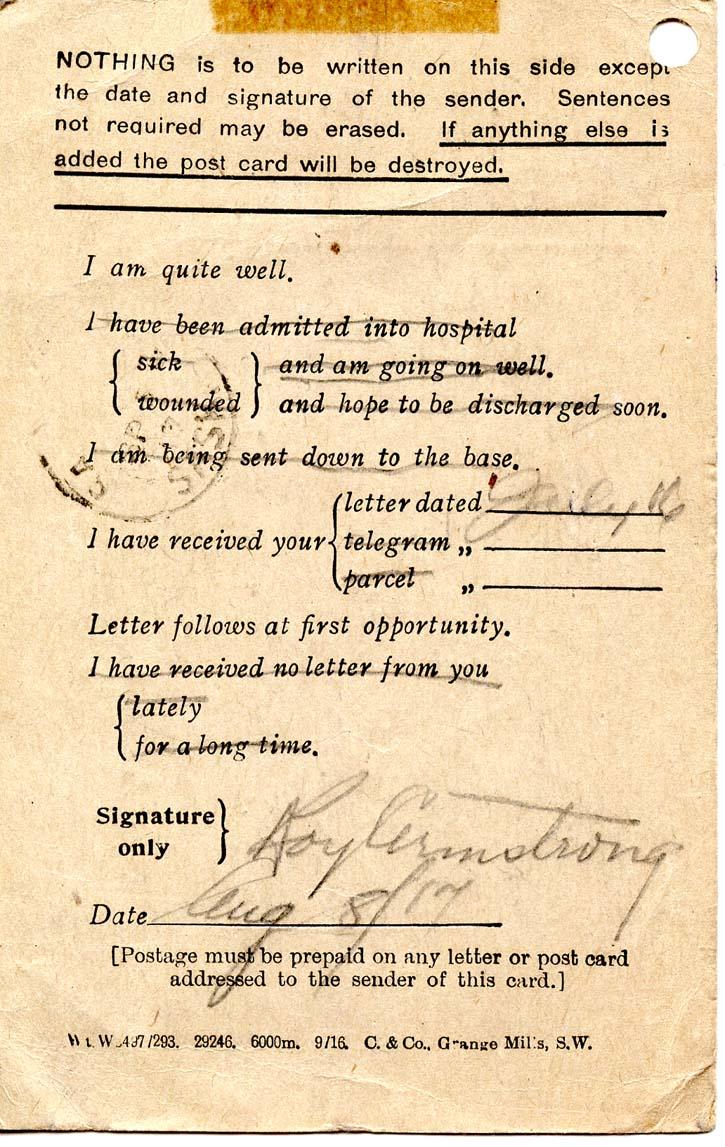 NOTHING is to be written on this side except
the date and signature of the sender. Sentences
not required may be erased. If anything else is
added the post card will be destroyed.
I am quite well.
I have been admitted into hospital
sick and am going on well.
wounded and hope to be discharged soon.
I am being sent down to the base.
letter dated July 16
I have received your telegram „
parcel „
Letter follows at first opportunity.
I have received no letter from you
lately
for a long time.
Signature
only
Roy Armstrong
Date Aug 8/17
[Postage must be prepaid on any letter or post card
addressed to the sender of this card.]
29246. 6000m. 9/16. C. & Co., Grange Mills, S.W.